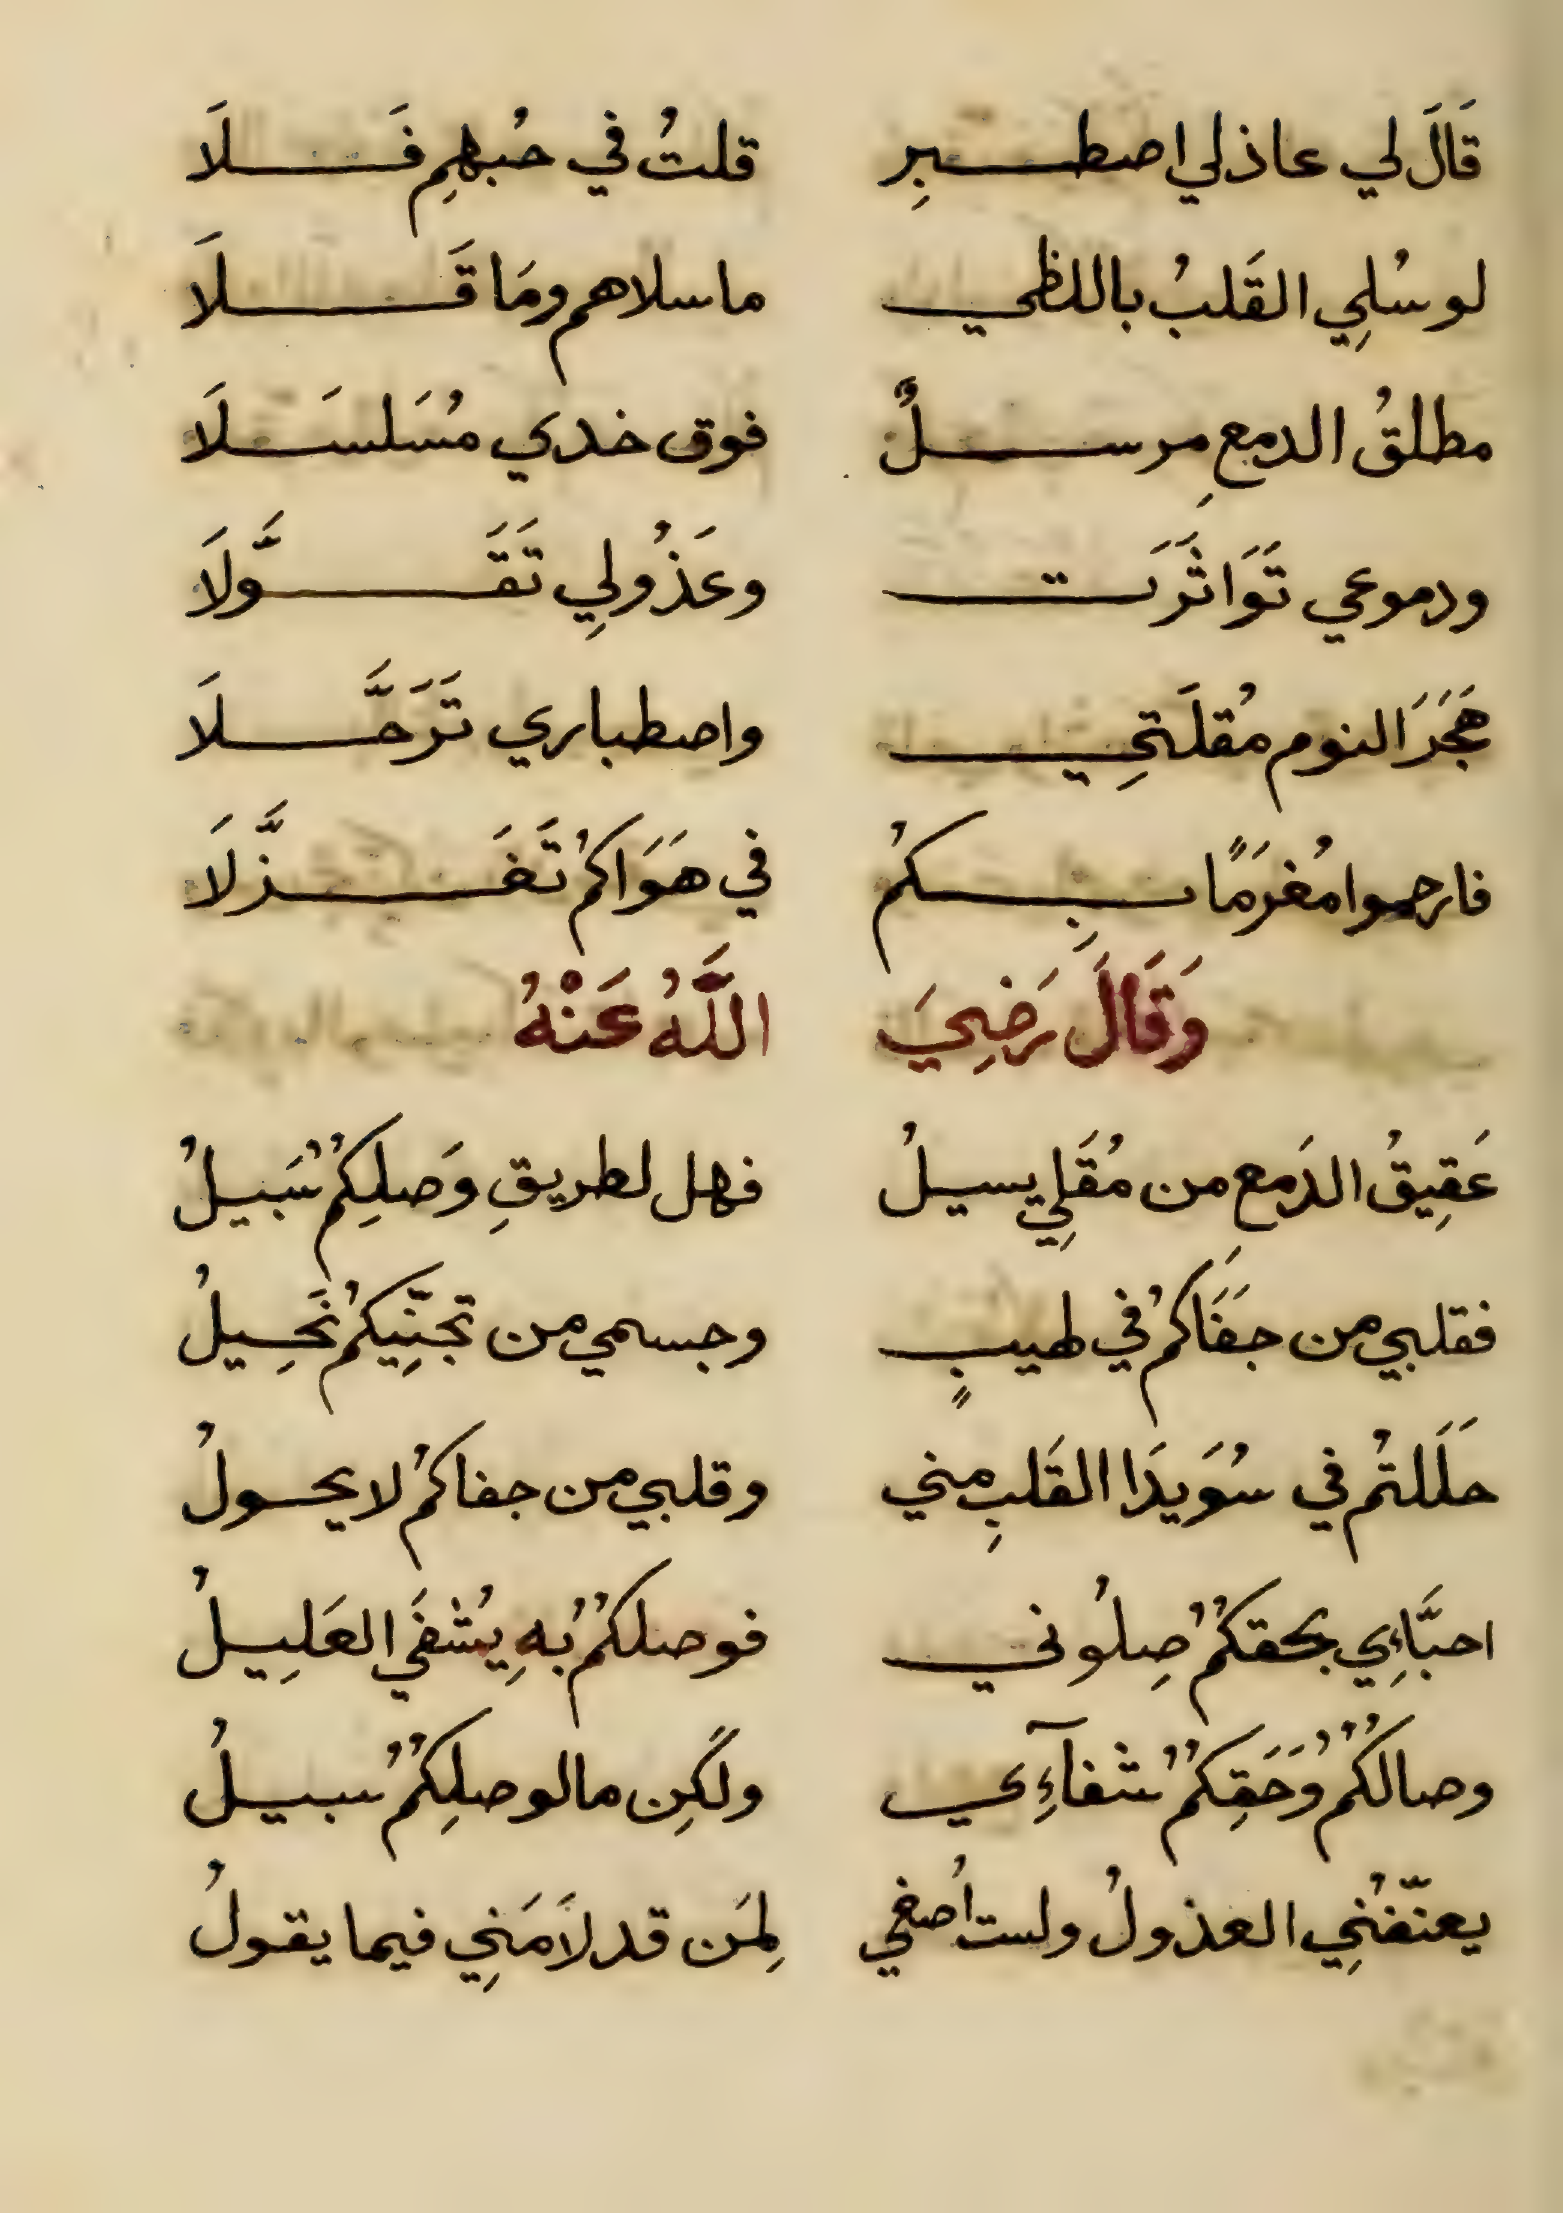 قَالَ لي عاذلي اصطبِر قلتُ في حُبهِم فَلَا
لو سُلِي القَلبُ باللظي ما سلاهم ومَا قَلَا
مطلقُ الدمعِ مرسلٌ فوق خدي مُسَلسَلَا
ودموعي تَوَاثَرَت وعَذُولِي تَقَوَّلَا
هَجَرَ النوم مُقلَتِي واصطباري تَرَحَّلَا
فارحموا مُغرَمًا بِكمُ في هَوَاكمُ تَغَزَّلَا
وَقَالَ رَضِيَ اللَّهُ عَنْهُ
عَقِيقُ الدَمعِ من مُقَلِي يسيلُ فهل لطريقِ وَصلِكمُ سَبيلُ
فقلبي من جفَاكمُ في لهيبٍ وجسمي من تجنِّيكمُ نَحِيلُ
حلَلتُم في سُوَيدَا القَلبِ مني وقلبي من جفاكمُ لا يحولُ
احبَّاءِي بحقكمُ صِلُوني فوصلكمُ بهِ يُشفَي العَلِيلُ
وصالكُمُ وَحَقِكمُ شفآءِي ولكِن ما لوصلِكمُ سبيلُ
يعنّفُنِي العذولُ ولست اُصغي لِمَن قد لَامَنِي فيما يقولُ